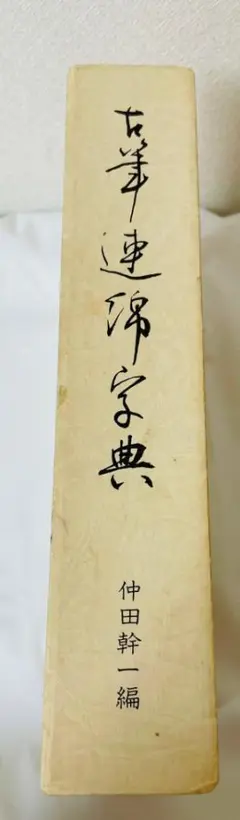 古筆連綿字典
仲田幹一編